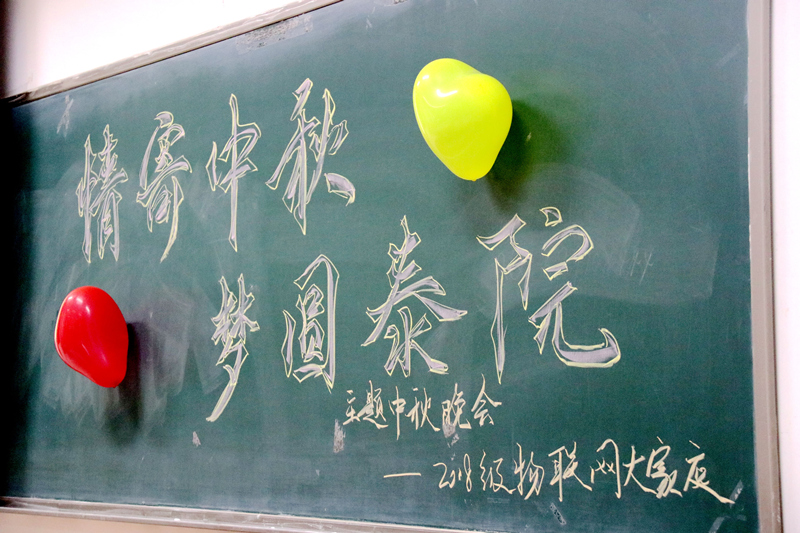 情寄中秋
梦圆泰院
主题中秋晚会
—2018级物联网大家庭